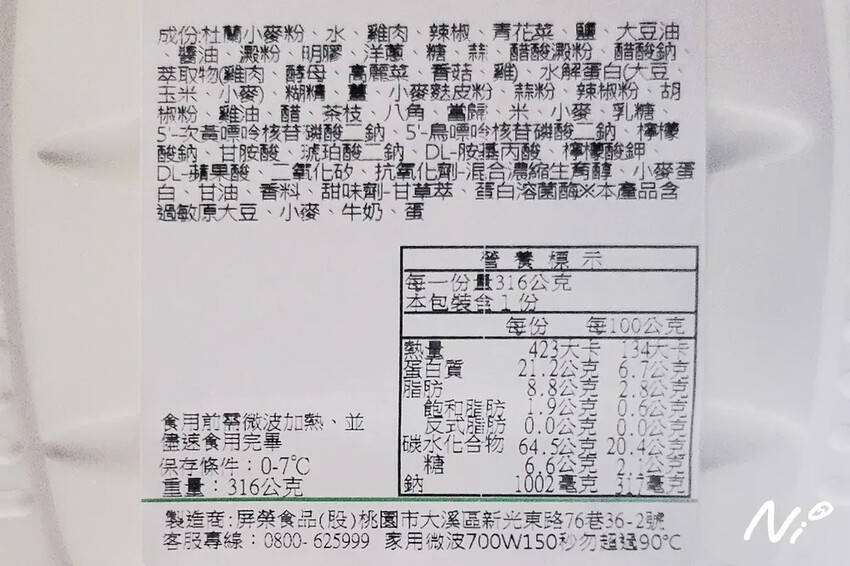 成份:杜蘭小麥粉、水、雞肉、辣椒、青花菜、鹽、大豆油
、醬油、澱粉、明膠、洋蔥、糖、蒜、醋酸澱粉、醋酸鈉、
萃取物(雞肉、酵母、高麗菜、香菇、雞)、水解蛋白(大豆、
玉米、小麥)、糊精、薑、小麥麩皮粉、蒜粉、辣椒粉、胡
椒粉、雞油、醋、茶枝、八角、當歸、米、小麥、乳糖、
5'-次黃嘌呤核苷磷酸二鈉、5'-鳥嘌呤核苷磷酸二鈉、檸檬
酸鈉、甘胺酸、琥珀酸二鈉、DL-胺基丙酸、檸檬酸鉀、
DL-蘋果酸、二氧化矽、抗氧化劑-混合濃縮生育醇、小麥蛋
白、甘油、香料、甜味劑-甘草萃、蛋白溶菌酶※本產品含
過敏原大豆、小麥、牛奶、蛋
營養標示
每一份量316公克
本包裝含 1 份
每份 每100公克
熱量 423大卡 134大卡
蛋白質 21.2公克 6.7公克
脂肪 8.8公克 2.8公克
飽和脂肪 1.9公克 0.6公克
反式脂肪 0.0公克 0.0公克
碳水化合物 64.5公克 20.4公克
糖 6.6公克 2.1公克
鈉 1002毫克 317毫克
食用前需微波加熱、並
儘速食用完畢
保存條件：0-7℃
重量：316公克
製造商:屏榮食品(股)桃園市大溪區新光東路76巷36-2號
客服專線：0800-625999 家用微波700W150秒勿超過90℃
Ni